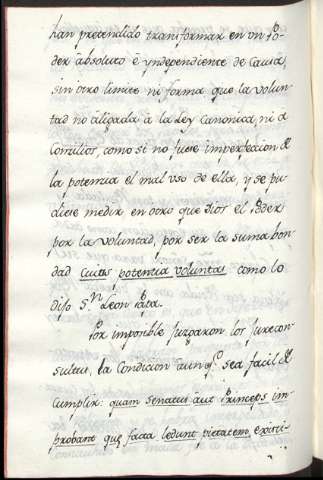 han pretendido transformar en vn Po-
der absoluto è yndependiente de Causa,
sin otro limite ni forma que la volun-
tad no aligada à la Ley Canonica, ni a
Conzilios, como si no fuese imperfeccion de
la potenzia el mal vso de ella, y se pu-
diese medir en otro que Dios el Poder
por la voluntad, por ser la suma bon-
dad Cuius potentia voluntas como lo
dijo Sn Leon Papa.
Por imposible Juzgaron los Jurecon-
sultos, la Condicion aunq. sea facil de
Cumplir: quam senatus aut Princeps im-
probant quæ facta ledunt pietatem, existi-